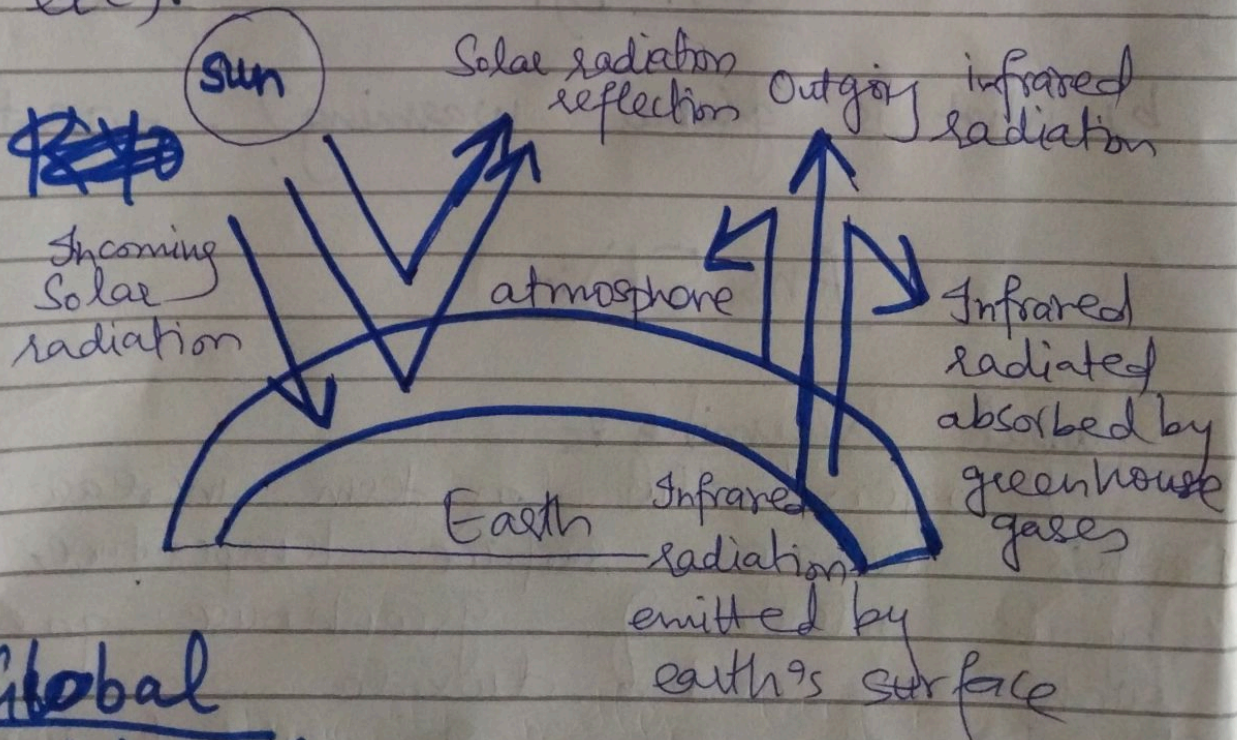 etc).
Sun
Solar radiation
reflection
Outgoing infrared
radiation
Incoming
Solar
radiation
atmosphore
Infrared
radiated
absorbed by
greenhouse
gases
Earth
Infrared
radiation
emitted by
earth's surface
Global